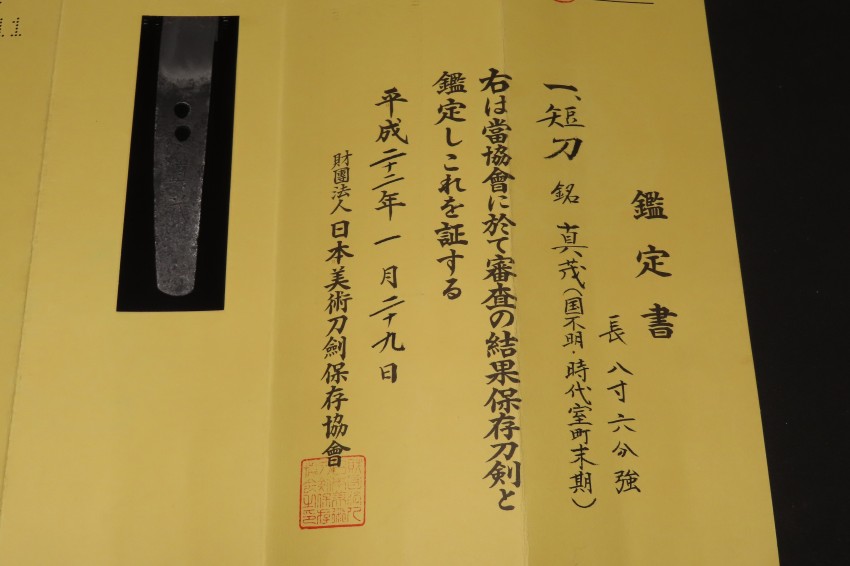 鑑定書
一、短刀 銘 真茂(国不明・時代室町末期)
長 八寸六分強
右は當協會に於て審査の結果保存刀剣と
鑑定しこれを証する
平成二十二年一月二十九日
財團法人 日本美術刀劍保存協會
11